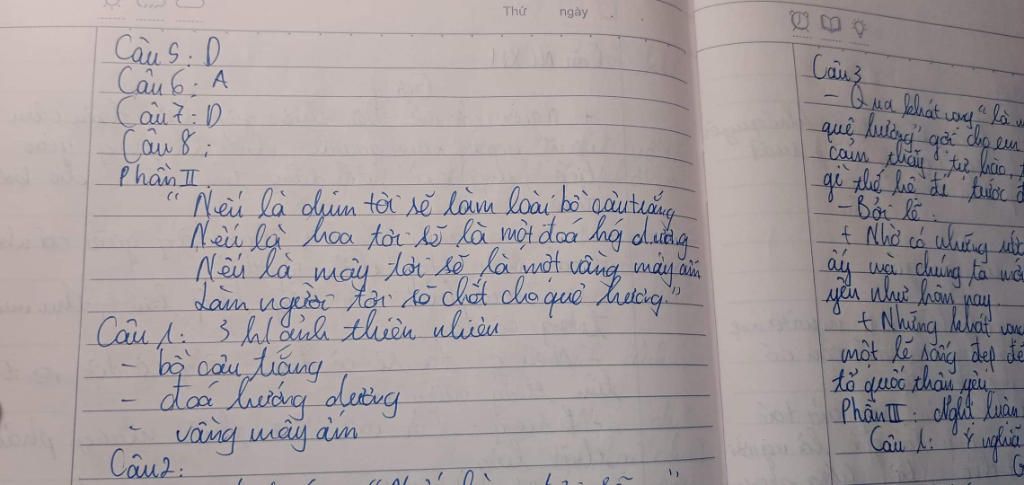 Thứ ngày
Câu 5: D
Câu 6: A
Câu 7: D
Câu 8:
Phần II
"Nếu là chim tôi sẽ làm loài bồ câu trắng
Nếu là hoa tôi sẽ là một đoá hg dương
Nếu là mây tôi sẽ là một vầng mây ấm
Làm người tôi sẽ chết cho quê hương."
Câu 1: 3 h/ảnh thiên nhiên
- bồ câu trắng
- đoá hướng dương
- vầng mây ấm
Câu 2:
Câu 3
- Qua khát vọng "là
quê hương" gợi cho em
cảm thấy tự hào,
gì thế hệ đi trước
- Bởi lẽ:
+ Nhờ có những
ấy mà chúng ta mới
yên như hôm nay.
+ Những khát vọng
một lẽ sống đẹp để
tổ quốc thân yêu.
Phần III: Nghị luận
Câu 1: Ý nghĩa